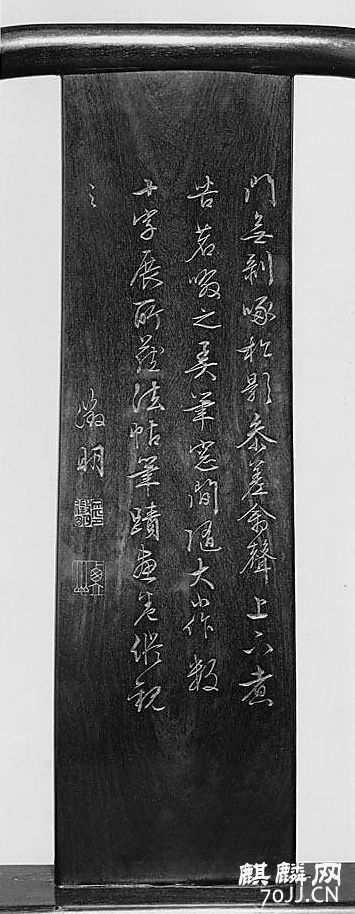 門無剝啄松影參差禽聲上下煮
苦茗啜之弄筆窓間隨大小作數
十字展所藏法帖筆蹟畫卷縱觀
之
徵明
麒麟网
70JJ.CN